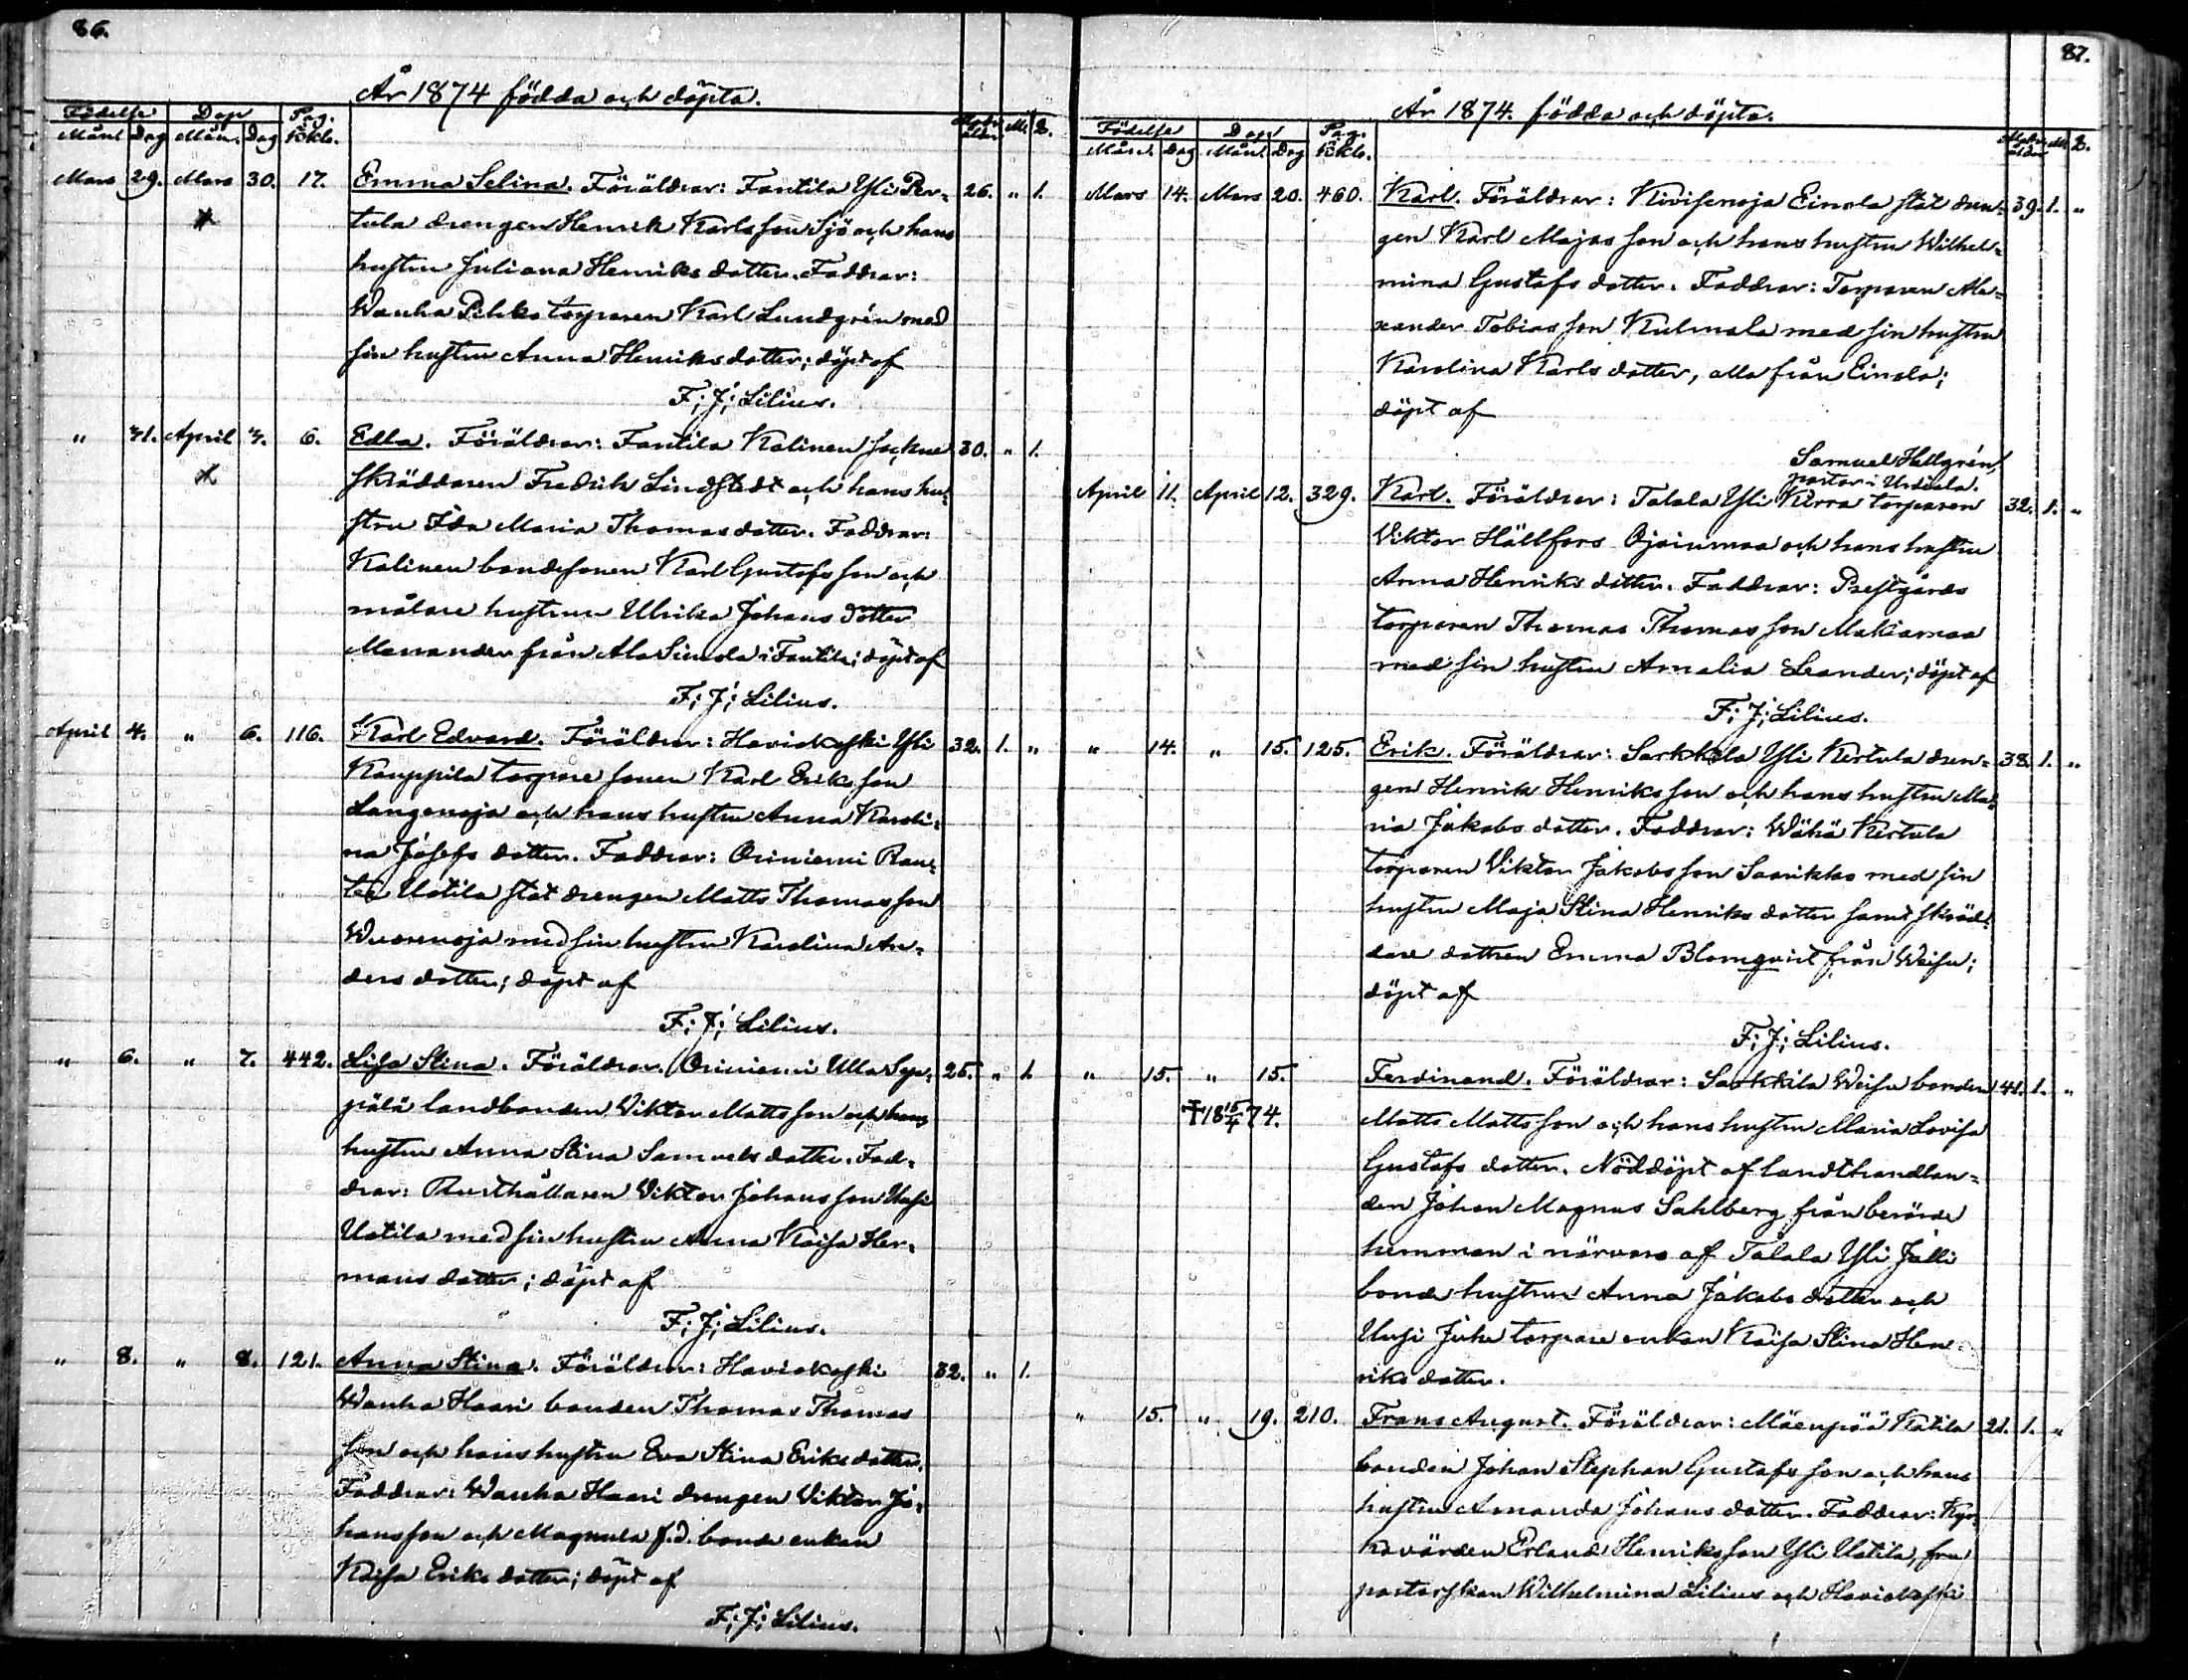 86.
År 1874 födda och döpta.
Födelse Dop Pag. Moders ålder M. Q.
Månd Dag Mån. Dag i Kkb.
Mars 29. Mars 30. 17. Emma Selina. Föräldrar: Fantila Yli Per- 26. " 1.
tula drengen Henrik Karlsson Sjö och hans
hustru Juliana Henriksdotter. Faddrar:
Wanha Pihko torparen Karl Lundgrén med
sin hustru Anna Henriksdotter; döpt af
F; J; Lilius.
" 31. April 3. 6. Edla. Föräldrar: Fantila Kalinen sockne 30. " 1.
skräddaren Fredrik Lindstedt och hans hu-
stru Ida Maria Thomasdotter. Faddrar:
Kalinen bondesonen Karl Gustafsson och
målare hustrun Ulrika Johansdotter
Menander från Ala Simola i Fantila; döpt af
F; J; Lilius.
April 4. " 6. 116. Karl Edvard. Föräldrar: Haviokoski Yli 32. 1. "
Kauppila torpare sonen Karl Eriksson
Langenoja och hans hustru Anna Karoli-
na Josefsdotter. Faddrar: Oriniemi Rau-
Uotila stat drengen Matts Thomasson
Wuorenoja med sin hustru Karolina An-
ders dotter; döpt af
F; J; Lilius.
" 6. " 7. 442. Lisa Stina. Föräldrar: Oriniemi Ulla Sep- 25. " 1.
pälä landbonden Viktor Mattsson och hans
hustru Anna Stina Samuelsdotter. Fad-
drar: Rusthållaren Viktor Johansson Uusi
Uotila med sin hustru Anna Kaisa Her-
mansdotter; döpt af
F; J; Lilius.
" 8. " 8. 121. Anna Stina. Föräldrar: Haviokoski 32. " 1.
Wanha Haari bonden Thomas Thomas
son och hans hustru Eva Stina Eriksdotter.
Faddrar: Wanha Haari drengen Viktor Jo-
hansson och Magnula f.d. bonde enkan
Kaisa Eriksdotter; döpt af
F; J; Lilius.
87.
År 1874. födda och döpta.
Födelse Dop Pag. Moders ålder M. Q.
Månd. Dag Månd. Dag i Kkb.
Mars 14. Mars 20. 460. Karl. Föräldrar: Kivisenoja Einola stat dren- 39. 1. "
gen Karl Majasson och hans hustru Wilhel-
mina Gustafsdotter. Faddrar: Torparen Ale-
xander Tobiasson Kulmala med sin hustru
Karolina Karlsdotter, alla från Einola;
döpt af
Samuel Hellgrén,
pastor i Urdiala.
April 11. April 12. 329. Karl. Föräldrar: Talala Yli Kirra torparen 32. 1. "
Viktor Hällfors Ojainmaa och hans hustru
Anna Henriksdotter. Faddrar: Prestgårds
torparen Thomas Thomasson Makiamaa
med sin hustru Amalia Leander; döpt af
F; J; Lilius.
" 14. " 15. 125. Erik. Föräldrar: Sarkkila Yli Kertula dren- 38. 1. "
gen Henrik Henriksson och hans hustru Ma-
ria Jakobsdotter. Faddrar: Wähä Kertula
torparen Viktor Jakobsson Saarikko med sin
hustru Maja Stina Henriksdotter samt skräd-
dare dottren Emma Blomqvist från Weisu;
döpt af
F; J; Lilius.
" 15. " 15. Ferdinand. Föräldrar: Sarkkila Weisu bonden 41. 1. "
† 18 15/4 74. Matts Mattsson och hans hustru Maria Lovisa
Gustafsdotter. Nöddöpt af landthandlan-
den Johan Magnus Sahlberg från berörde
hemman i närvaro af Talala Yli Jälli
bonde hustrun Anna Jakobsdotter och
Uusi Juhe torpare enkan Kaisa Stina Hen-
riksdotter.
" 15. " 19. 210. Frans August. Föräldrar: Mäenpää Katila 21. 1. "
bonden Johan Stephan Gustafsson och hans
hustru Amanda Johansdotter. Faddrar: Kyr-
kovärden Erland Henriksson Yli Uotila, fru
pastorskan Wilhelmina Lilius och Haviokoski